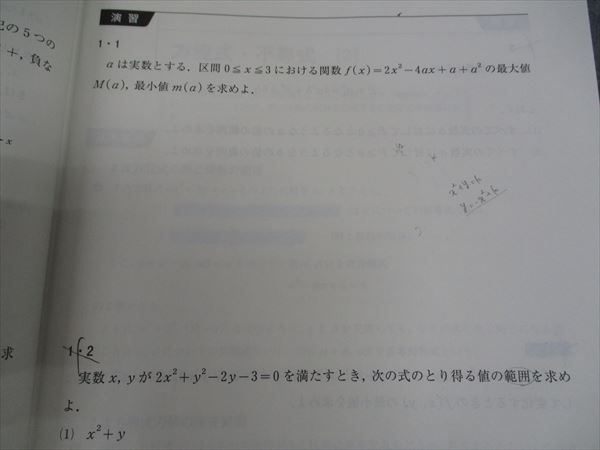 演習
記の5つの
+,負な
1・1
aは実数とする.区間0≦x≦3における関数f(x)=2x²-4ax+a+a²の最大値
M(a),最小値m(a)を求めよ.
x²+y=k
y=-x²+k
求
1・2
実数x, yが2x²+y²-2y-3=0を満たすとき,次の式のとり得る値の範囲を求め
よ.
(1) x²+y